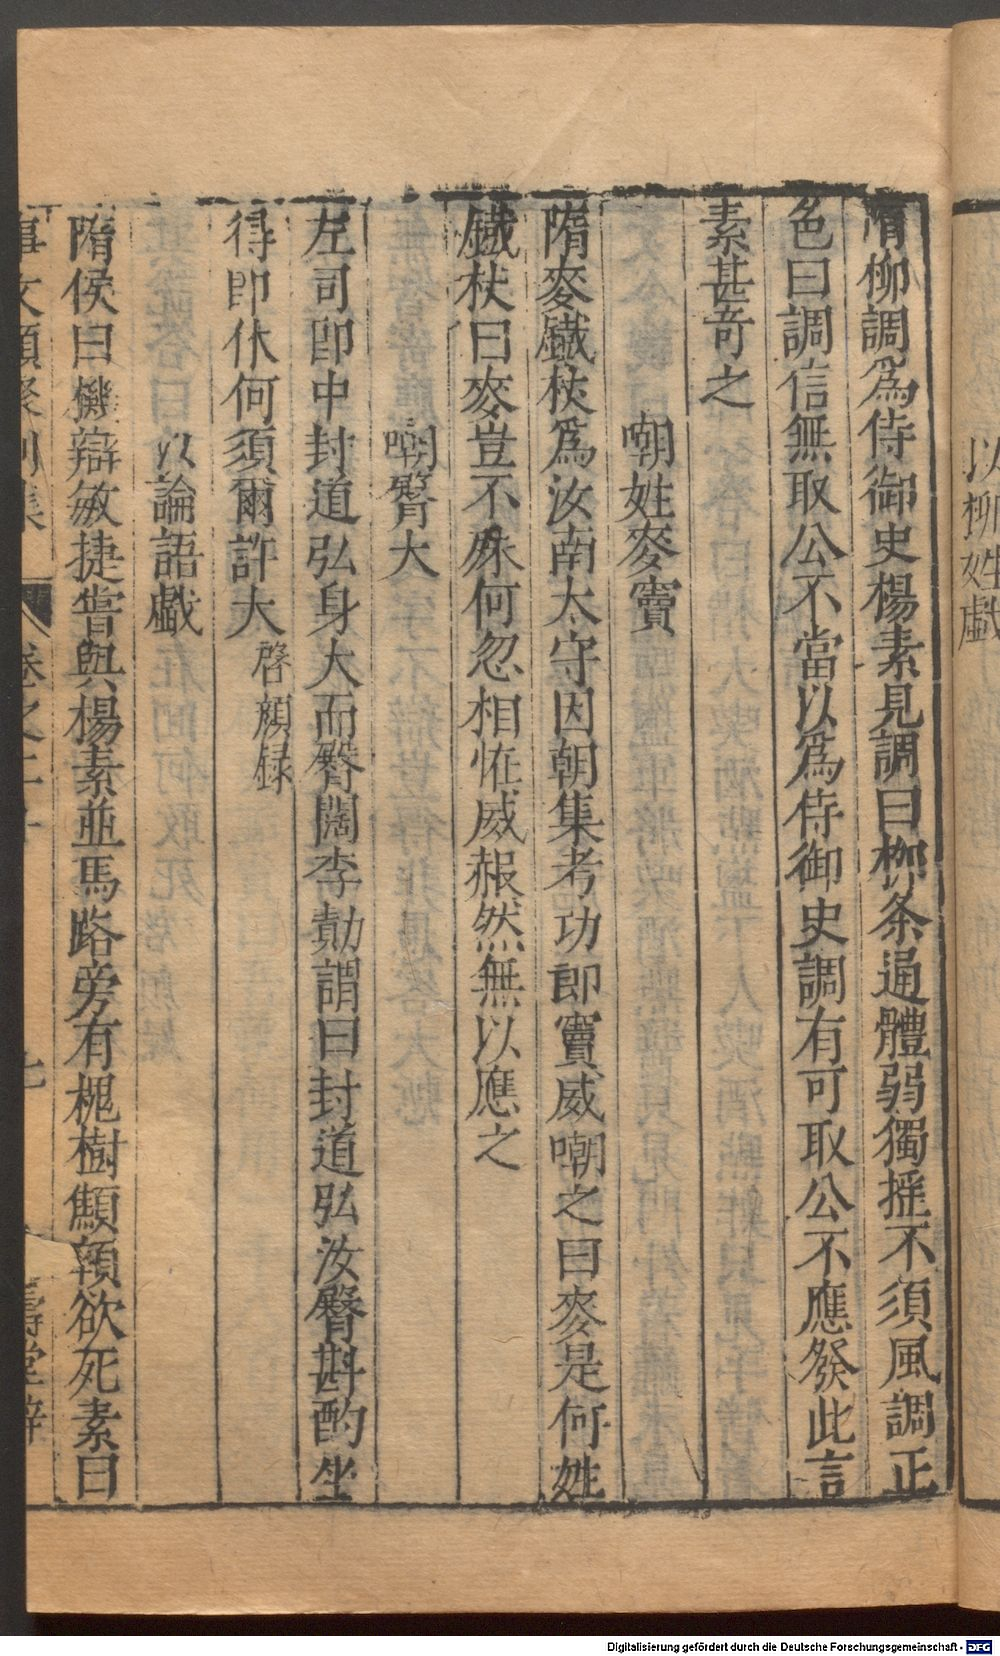 以柳姓戲
隋柳調爲侍御史楊素見調曰柳条通體弱獨揺不須風調正
色曰調信無取公不當以爲侍御史調有可取公不應發此言
素甚奇之
嘲姓麥竇
隋麥鐵杖爲汝南太守因朝集考功郎竇威嘲之曰麥是何姓
鐵杖曰麥豈不殊何忽相恠威赧然無以應之
嘲臀大
左司郎中封道弘身大而臀闊李勣謂曰封道弘汝臀斟酌坐
得即休何須爾許大 啓顔録
以論語戲
隋侯曰機辯敏捷嘗與楊素並馬路旁有槐樹顦顇欲死素曰
事文類聚別集 卷之二十 七 壽堂梓
Digitalisierung gefördert durch die Deutsche Forschungsgemeinschaft - DFG